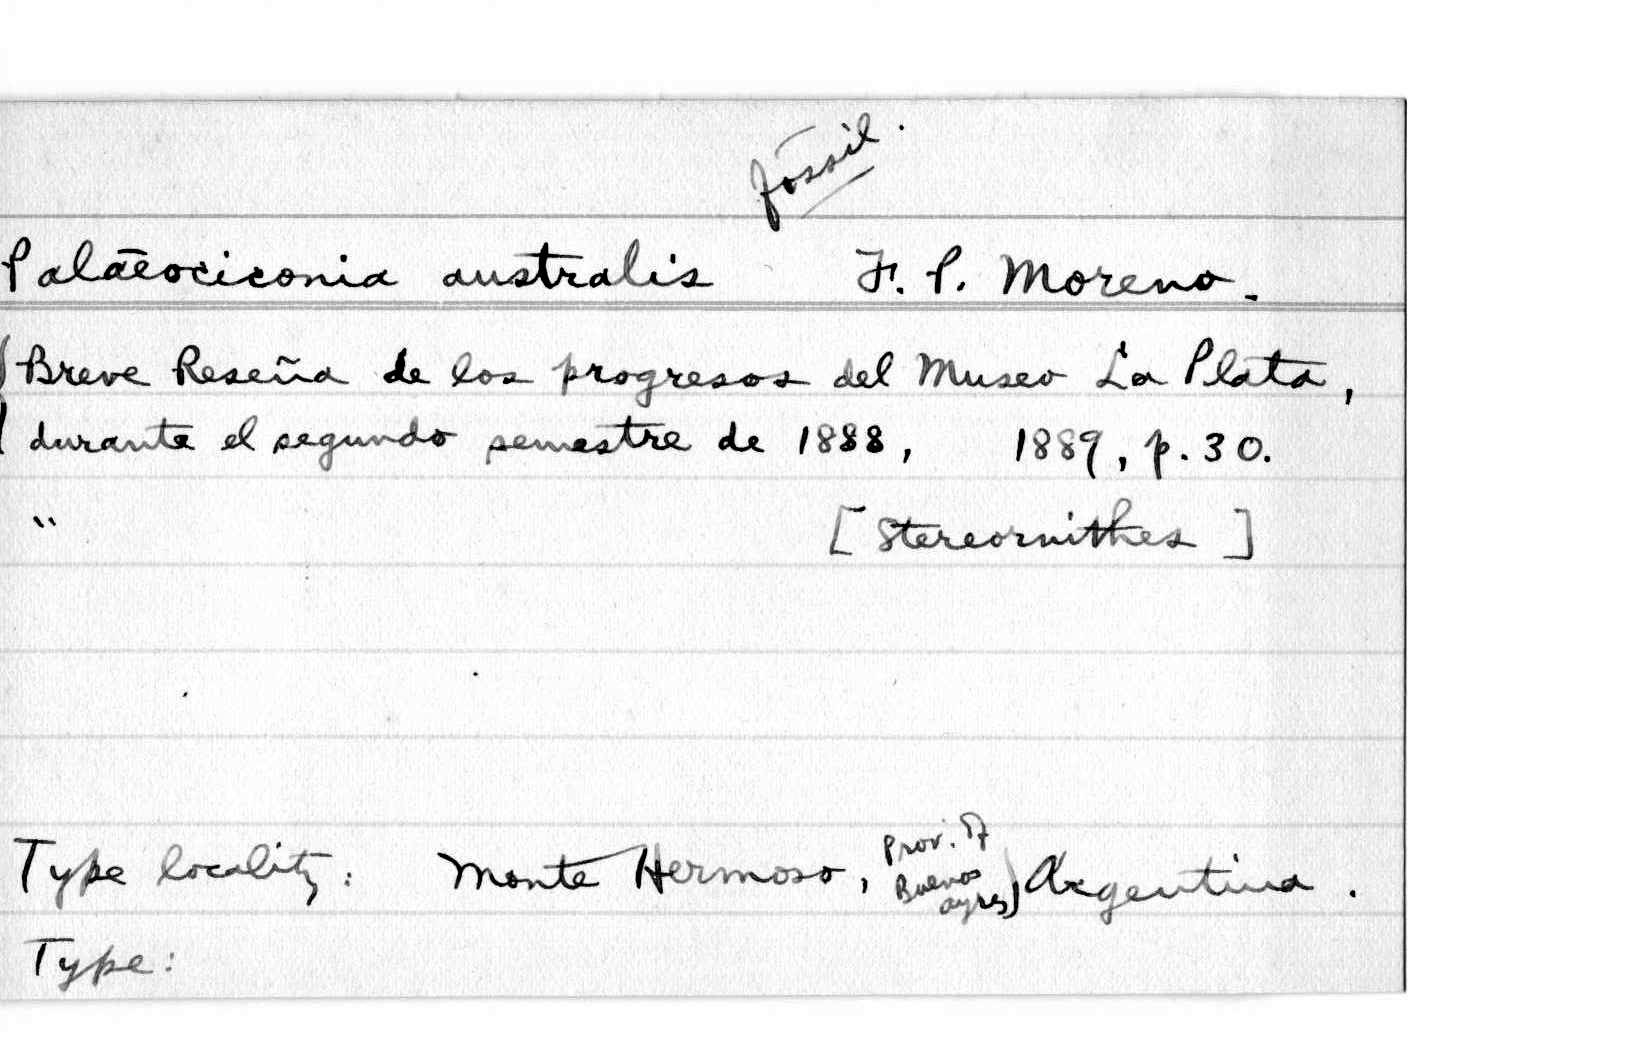 fossil.
Palaeociconia australis F. P. Moreno.
Breve Reseña de los progresos del Museo La Plata,
durante el segundo semestre de 1888, 1889, p. 30.
" [Stereornithes]
Type locality: Monte Hermoso, Prov. of Buenos Ayres) Argentina.
Type: